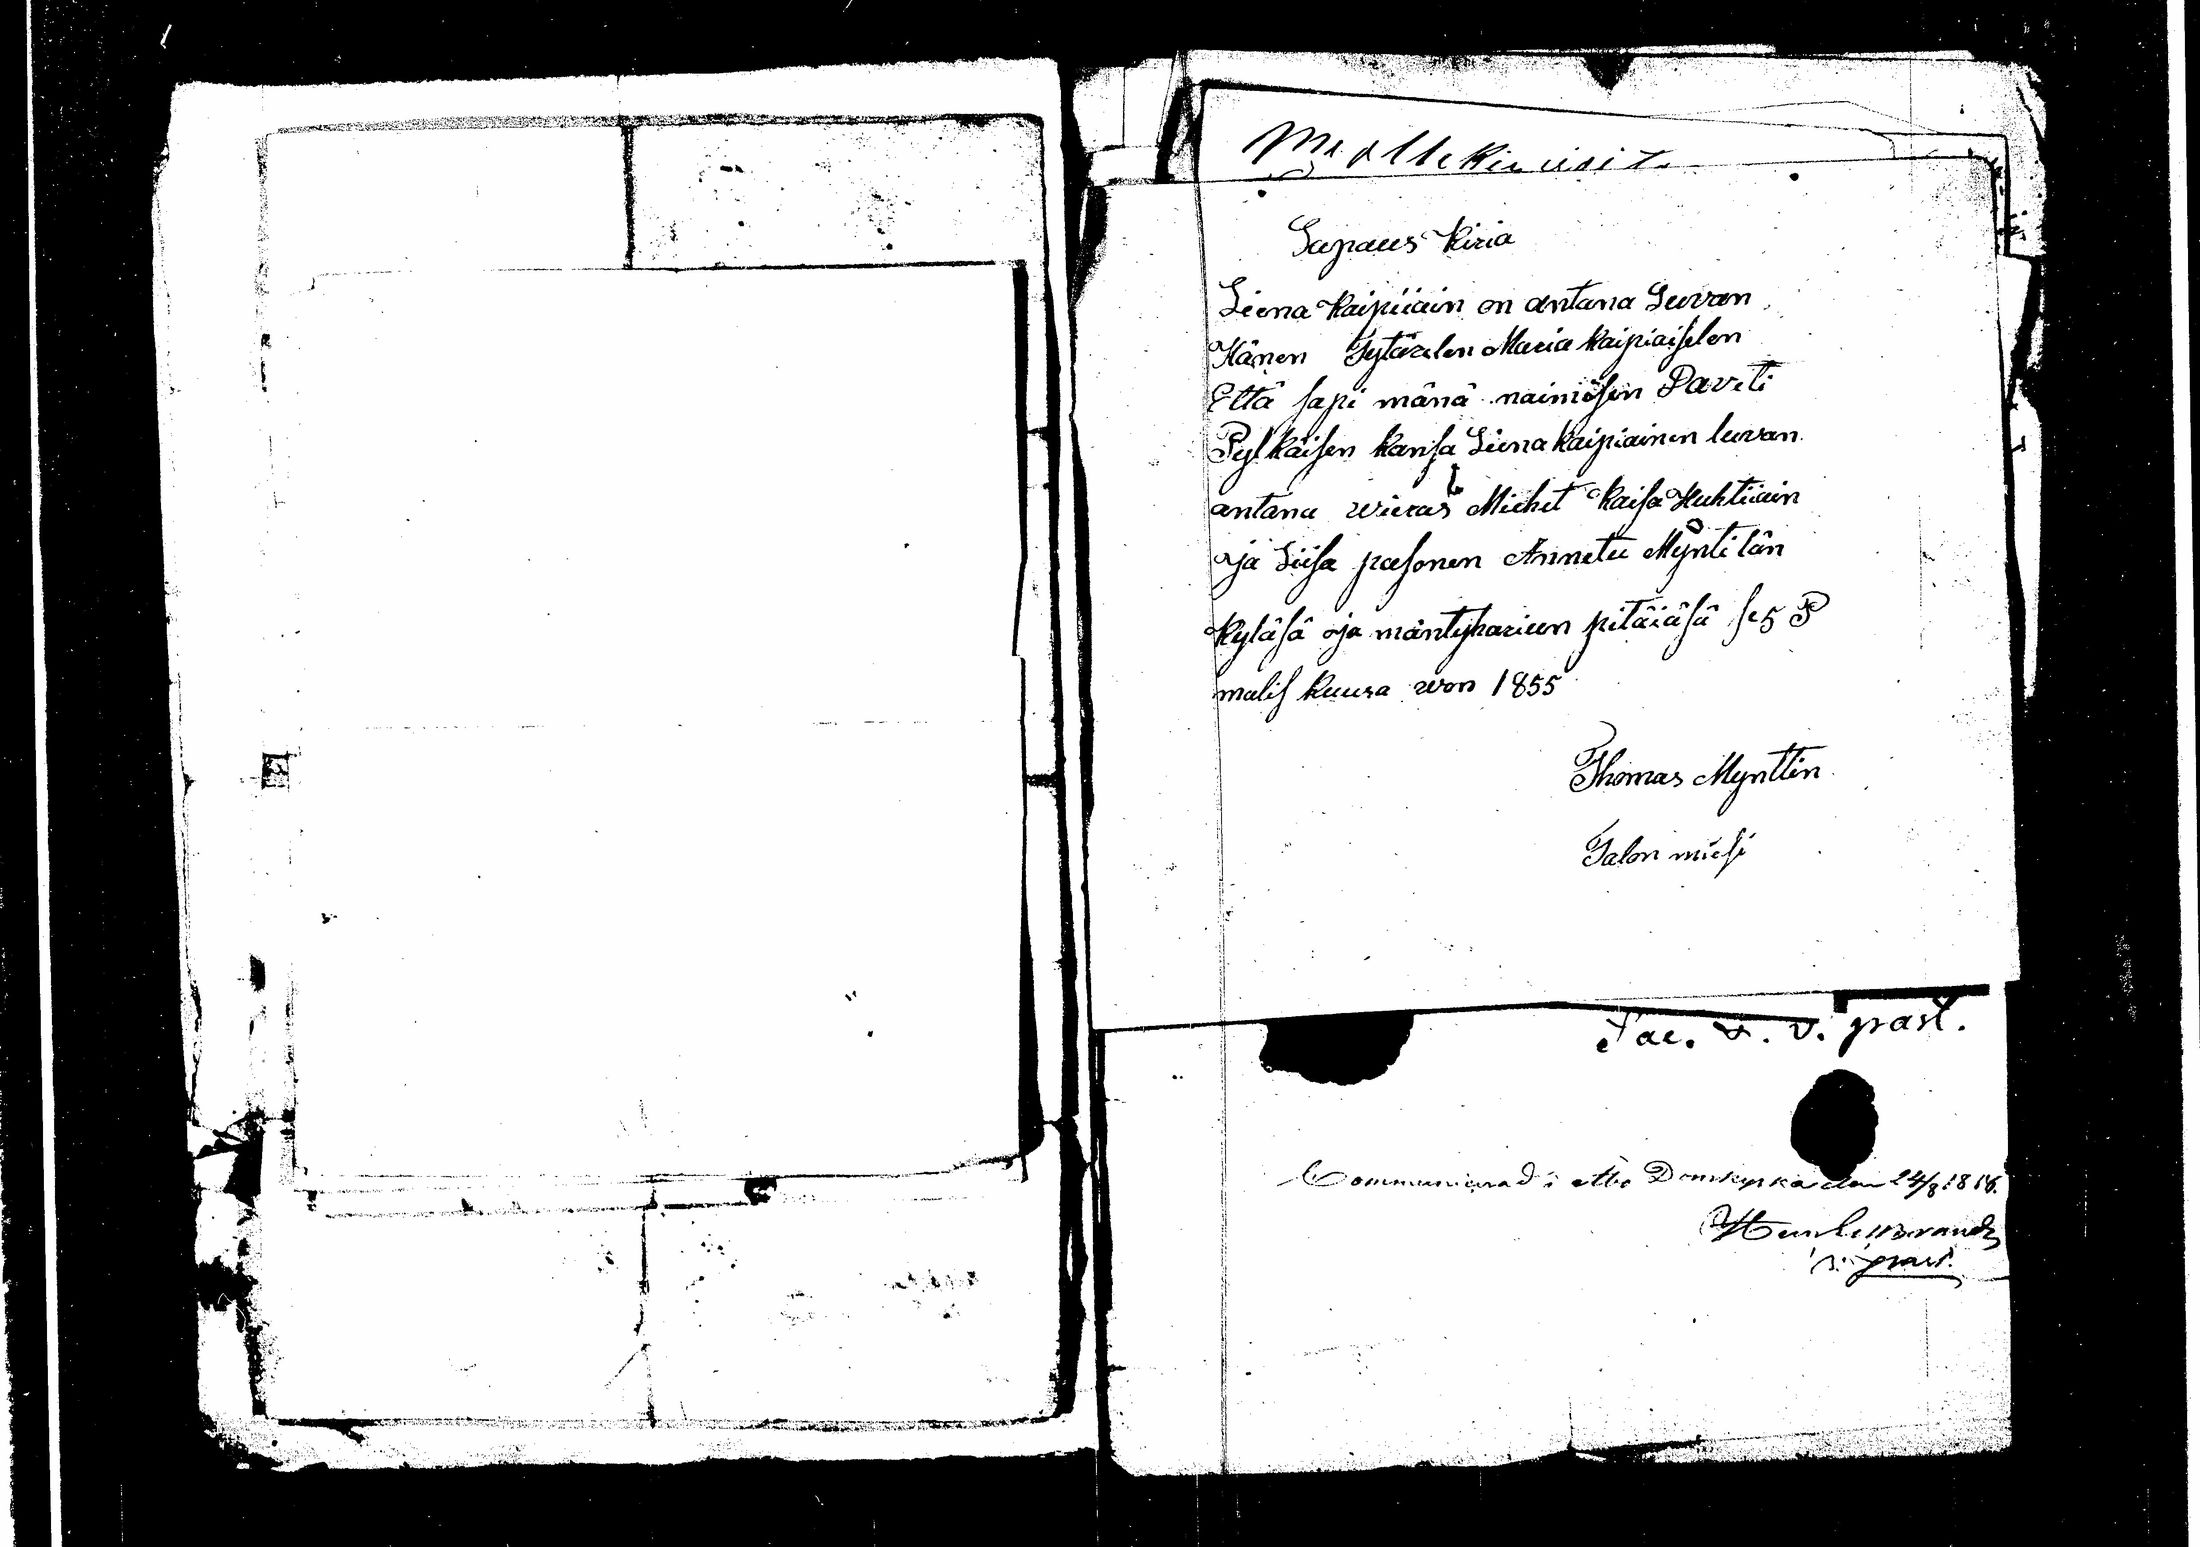 Lupaus Kiria
Liena Kaipiiain on antana Luvan
Hänen Tytärelen Maria Kaipiaiselen
Että sapi mänä naimösen Daveti
Pylkäisen kansa Liena Kaipiainen luvan
antana wieras Miehet Kaisa Huhtiiain
ja Liisa pasonen Annetu Myntilän
kyläsä ja mäntyhariun pitäiäsä se 5 P
malis kuusa won 1855
Thomas Mynttin
Talon miesi
Pac. v. v. past.
Communicerad i Åbo Domkyrka den 24/8 1856.
v. past.